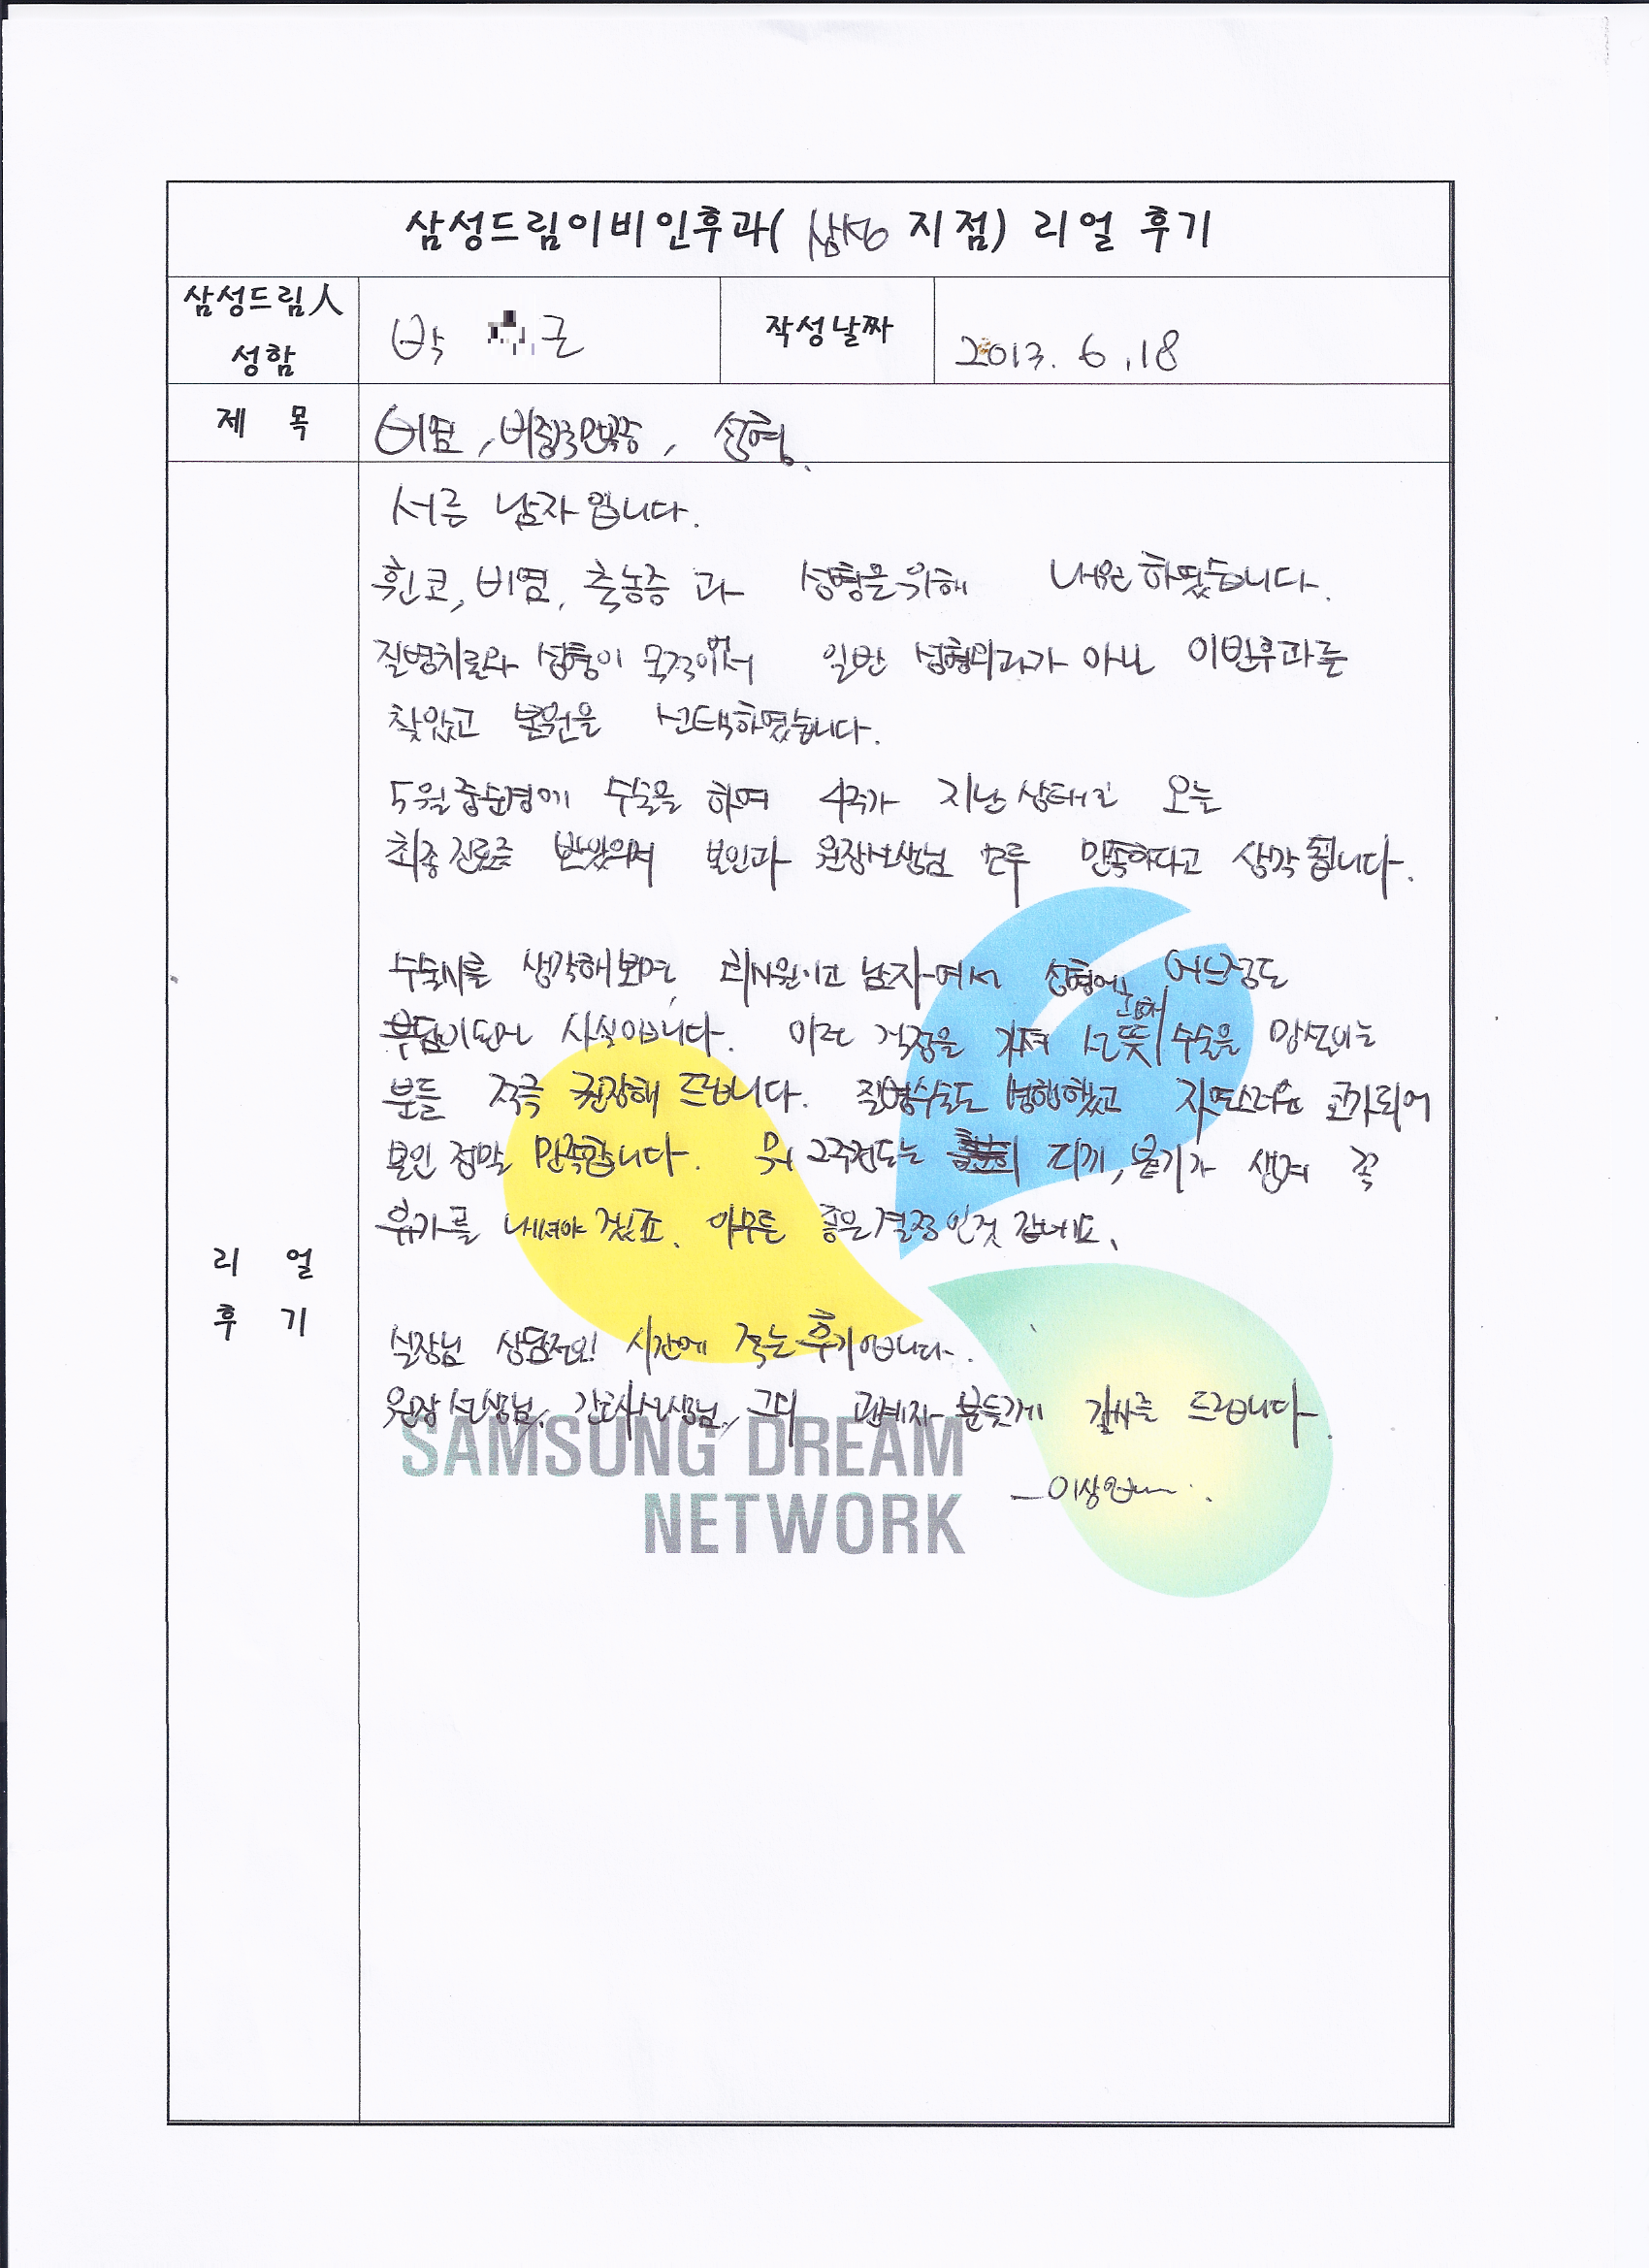 삼성드림이비인후과( 삼성 지점) 리얼 후기
삼성드림人
성함
박 근
작성날짜
2013. 6.18
제 목
비염, 비중격만곡증, 성형.
리 얼
후 기
서른 남자입니다.
휜코, 비염, 축농증 과 성형을 위해 내원하였습니다.
질병치료와 성형이 목적이어서 일반 성형외과가 아닌 이비인후과를
찾았고 본원을 선택하였습니다.
5월중순경에 수술을 하여 4주가 지난 상태고 오늘
최종진료를 받았으며 본인과 원장선생님 모두 만족하다고 생각됩니다.
수술시를 생각해보면, 회사원이고 남자여서 성형에 어느정도
부담이되는건 사실입니다. 이런 걱정을 가져 선뜻 수술을 망설이는
분들 적극 권장해 드립니다. 질병수술도 병행했고 자연스러운 코가되어
본인 정말 만족합니다. 뭐 2주정도는 티끼, 붓기가 생겨 꼭
휴가를 내셔야 겠죠. 아무튼 좋은결정인것 같네요.
실장님 상담전! 시간에 적는 후기입니다.
원장선생님, 간호사선생님, 그외 관계자 분들께 감사를 드립니다.
SAMSUNG DREAM
NETWORK
이상